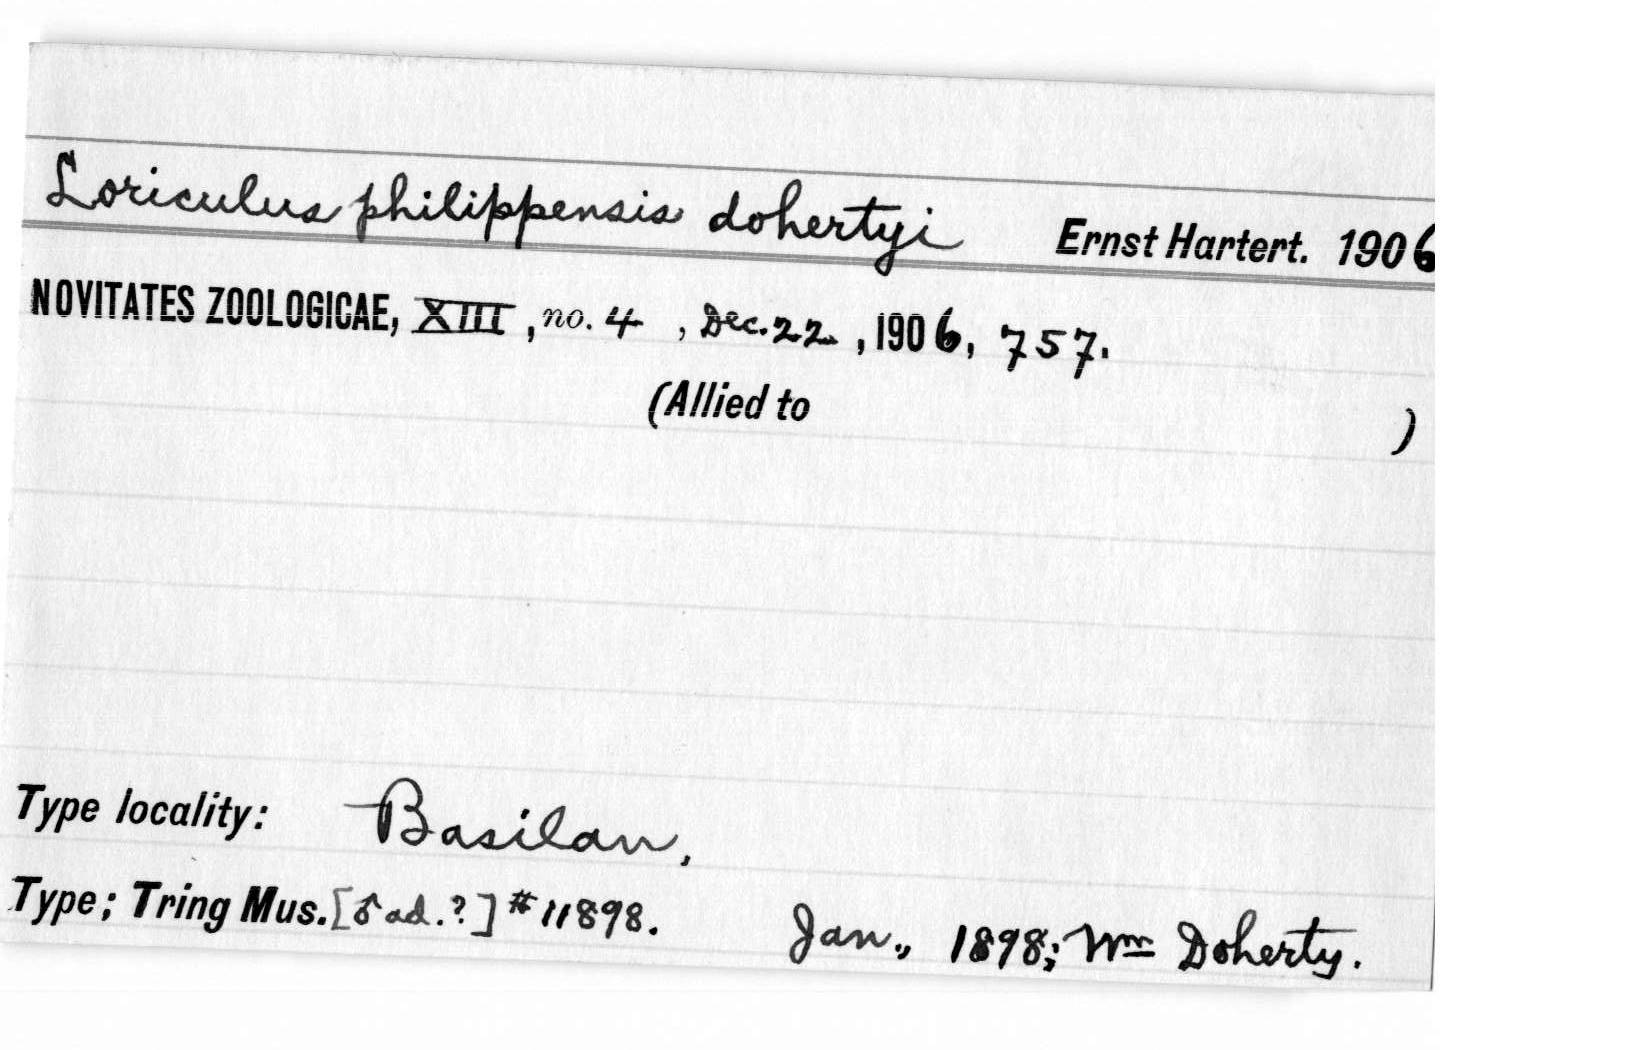 Loriculus philippensis dohertyi Ernst Hartert. 1906
NOVITATES ZOOLOGICAE, XIII, no. 4, Dec. 22, 1906, 757.
(Allied to )
Type locality: Basilan,
Type; Tring Mus. [♂ ad.?] #11898. Jan., 1898; Wm Doherty.